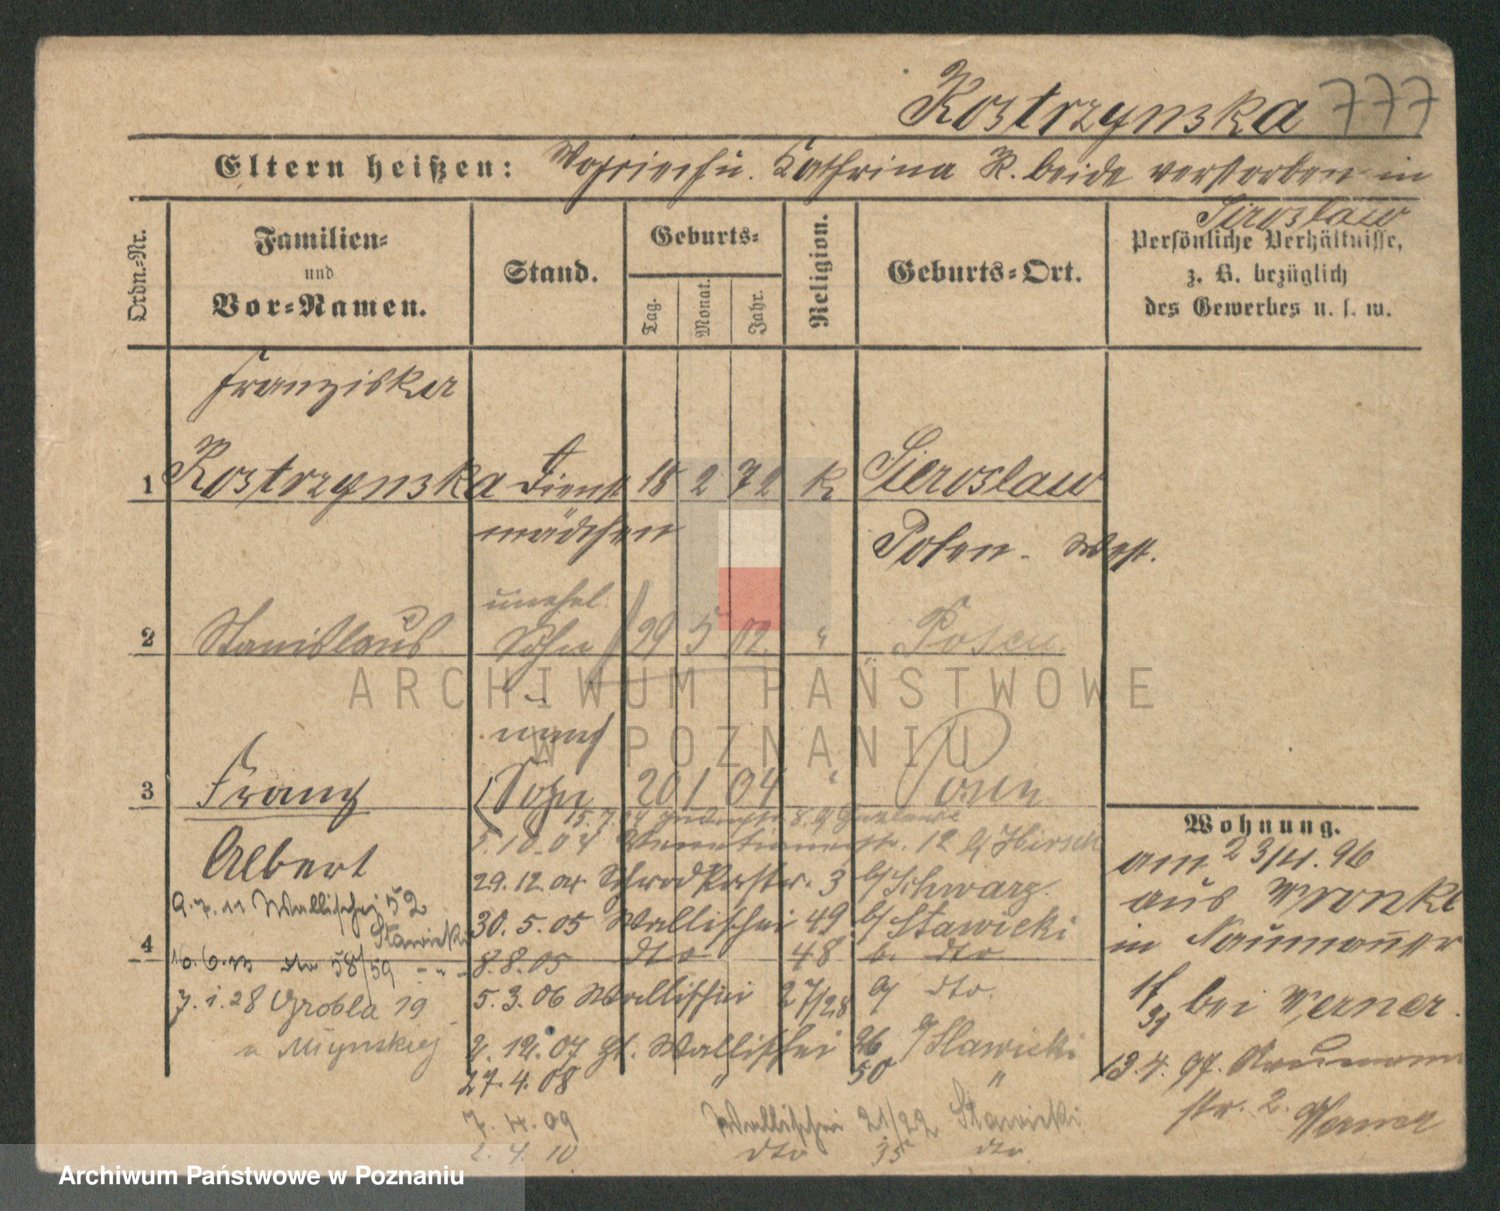 Kostrzynska 777
Eltern heißen: Wojciech u. Kathrina K. beide verstorben in
Sieroslaw
Ordn.-Nr.
Familien-
und
Vor-Namen.
Stand.
Geburts-
Tag.
Monat.
Jahr.
Religion.
Geburts-Ort.
Persönliche Verhältnisse,
z. B. bezüglich
des Gewerbes u. s. w.
Franziska
1 Kostrzynska Dienst 18 2 72 K Sieroslaw
mädchen Posen - West.
unehel.
2 Stanislaus Sohn 29 5 02 " Posen
3 Franz Sohn 20 1 04 " Posen
Albert
9.7.11 Wallischei 52
Stawicki
4
16.6.13 dto 58/59 - " -
7.1.28 Grobla 19
u Mĺynskiej
15.7.04
5.10.04 12 b/ Hirsch
29.12.04 3 b/ Schwarz.
30.5.05 Wallischei 49 b/ Stawicki
8.8.05 dto 48 b. dto
5.3.06 Wallischei 27/28 b/ dto.
2.12.07 gr. Wallischei 26 b/ Stawicki
27.4.08 " 50 "
7.4.09 Wallischei 21/22 Stawicki
2.4.10 dto 35 dto.
Wohnung.
am 23/11. 96
aus Wronke
in Naumannstr
bei Werner.
13.4.97. Naumann
str. 2. Werner
ARCHIWUM PAŃSTWOWE
W POZNANIU
Archiwum Państwowe w Poznaniu